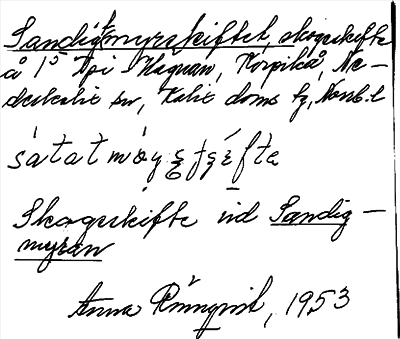 Sandigtmyrskiftet, skogsskifte
å 1⁵ Api Hagnan, Korpikå, Ne-
derkalix sn, Kalix doms tg, Norrb. l
Skogsskifte vid Sandig-
myran
Anna Rönnqvist, 1953